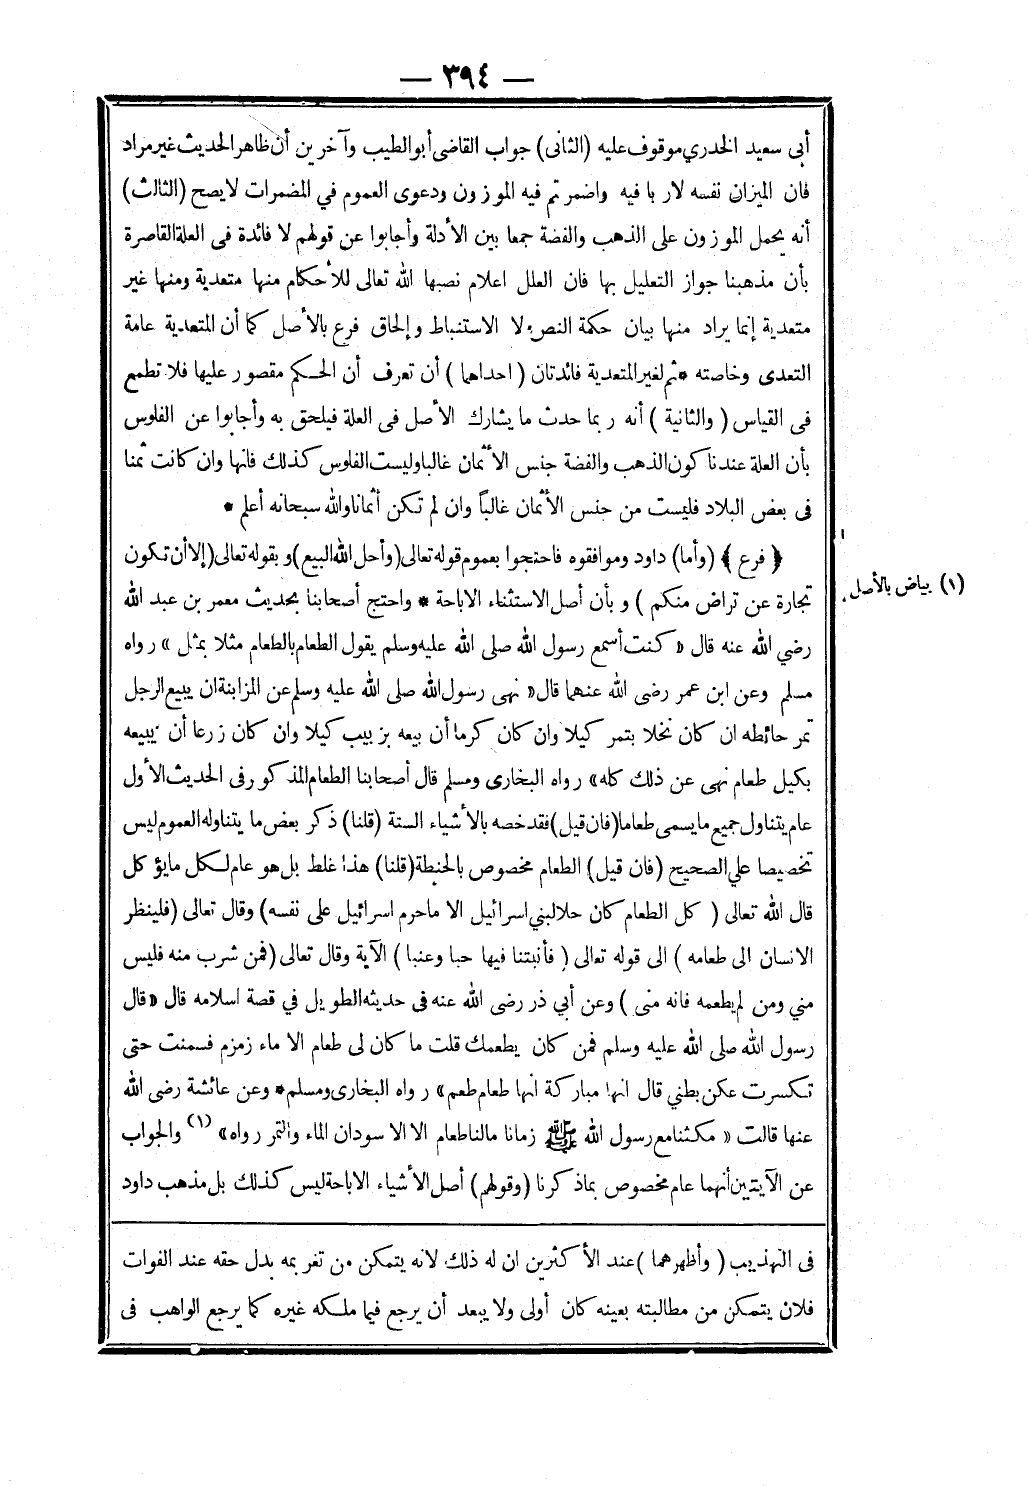 — ٣٩٤ —
أبى سعيد الخدري موقوف عليه (الثانى) جواب القاضى أبو الطيب وآخرين أن ظاهر الحديث غير مراد
فان الميزان نفسه لا ربا فيه واضمرتم فيه الموزون ودعوى العموم في المضمرات لا يصح (الثالث)
أنه يحمل الموزون على الذهب والفضة جمعا بين الأدلة وأجابوا عن قولهم لا فائدة فى العلة القاصرة
بأن مذهبنا جواز التعليل بها فان العلل اعلام نصبها الله تعالى للأحكام منها متعدية ومنها غير
متعدية إنما يراد منها بيان حكمة النص لا الاستنباط وإلحاق فرع بالأصل كما أن المتعدية عامة
التعدى وخاصته * ثم لغير المتعدية فائدتان ( احداهما ) أن تعرف أن الحكم مقصور عليها فلا تطمع
فى القياس ( والثانية ) أنه ربما حدث ما يشارك الأصل فى العلة فيلحق به وأجابوا عن الفلوس
بأن العلة عندنا كون الذهب والفضة جنس الأثمان غالبا وليست الفلوس كذلك فانها وان كانت ثمنا
فى بعض البلاد فليست من جنس الأثمان غالباً وان لم تكن أثمانا والله سبحانه أعلم *
﴿ فرع ﴾ (وأما) داود وموافقوه فاحتجوا بعموم قوله تعالى (وأحل الله البيع) وبقوله تعالى (إلا أن تكون
تجارة عن تراض منكم ) و بأن أصل الاستثناء الاباحة * واحتج أصحابنا بحديث معمر بن عبد الله
رضي الله عنه قال « كنت أسمع رسول الله صلى الله عليه وسلم يقول الطعام بالطعام مثلا بمثل » رواه
مسلم وعن ابن عمر رضى الله عنهما قال « نهى رسول الله صلى الله عليه وسلم عن المزابنة ان يبيع الرجل
ثمر حائطه ان كان نخلا بتمر كيلا وان كان كرما أن بيعه بزبيب كيلا وان كان زرعا أن يبيعه
بكيل طعام نهى عن ذلك كله» رواه البخارى ومسلم قال أصحابنا الطعام المذكور فى الحديث الأول
عام يتناول جميع ما يسمى طعاما (فان قيل) فقد خصه بالأشياء الستة (قلنا) ذكر بعض ما يتناوله العموم ليس
تخصيصا علي الصحيح (فان قيل) الطعام مخصوص بالحنطة (قلنا) هذا غلط بل هو عام لكل مايؤكل
قال الله تعالى ( كل الطعام كان حلا لبني اسرائيل الا ما حرم اسرائيل على نفسه) وقال تعالى (فلينظر
الانسان الى طعامه ) الى قوله تعالى ( فأنبتنا فيها حبا وعنبا ) الآية وقال تعالى (فمن شرب منه فليس
مني ومن لم يطعمه فانه منى ) وعن أبي ذر رضى الله عنه فى حديثه الطويل في قصة اسلامه قال « قال
رسول الله صلى الله عليه وسلم فمن كان يطعمك قلت ما كان لى طعام الا ماء زمزم فسمنت حتى
تكسرت عكن بطني قال انها مباركة انها طعام طعم » رواه البخارى ومسلم * وعن عائشة رضى الله
عنها قالت « مكثنا مع رسول الله ﷺ زمانا مالنا طعام الا الاسودان الماء والتمر رواه » (١) والجواب
عن الآيتين أنهما عام مخصوص بماذكرنا (وقولهم) أصل الأشياء الاباحة ليس كذلك بل مذهب داود
(١) بياض بالأصل
فى التهذيب ( وأظهرهما ) عند الأكثرين ان له ذلك لانه يتمكن من تغريمه بدل حقه عند الفوات
فلان يتمكن من مطالبته بعينه كان أولى ولا يبعد أن يرجع فيما ملكه غيره كما يرجع الواهب فى